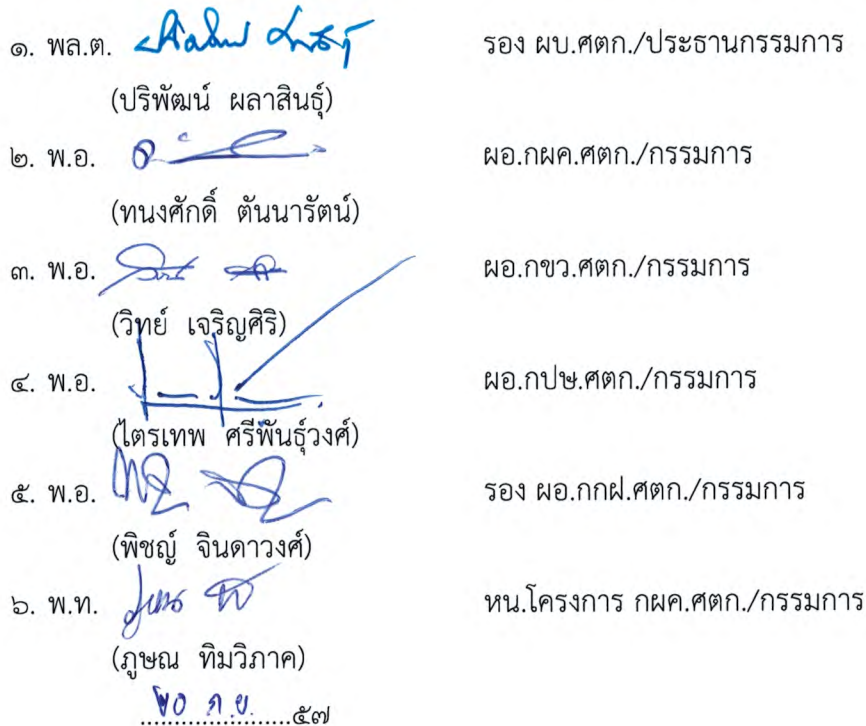 ๑. พล.ต. รอง ผบ.ศตก./ประธานกรรมการ
(ปริพัฒน์ ผลาสินธุ์)
๒. พ.อ. ผอ.กผค.ศตก./กรรมการ
(ทนงศักดิ์ ตันนารัตน์)
๓. พ.อ. ผอ.กขว.ศตก./กรรมการ
(วิทย์ เจริญศิริ)
๔. พ.อ. ผอ.กปษ.ศตก./กรรมการ
(ไตรเทพ ศรีพันธุ์วงศ์)
๕. พ.อ. รอง ผอ.กกฝ.ศตก./กรรมการ
(พิชญ์ จินดาวงศ์)
๖. พ.ท. หน.โครงการ กผค.ศตก./กรรมการ
(ภูษณ ทิมวิภาค)
๒๐ ก.ย. ๕๗